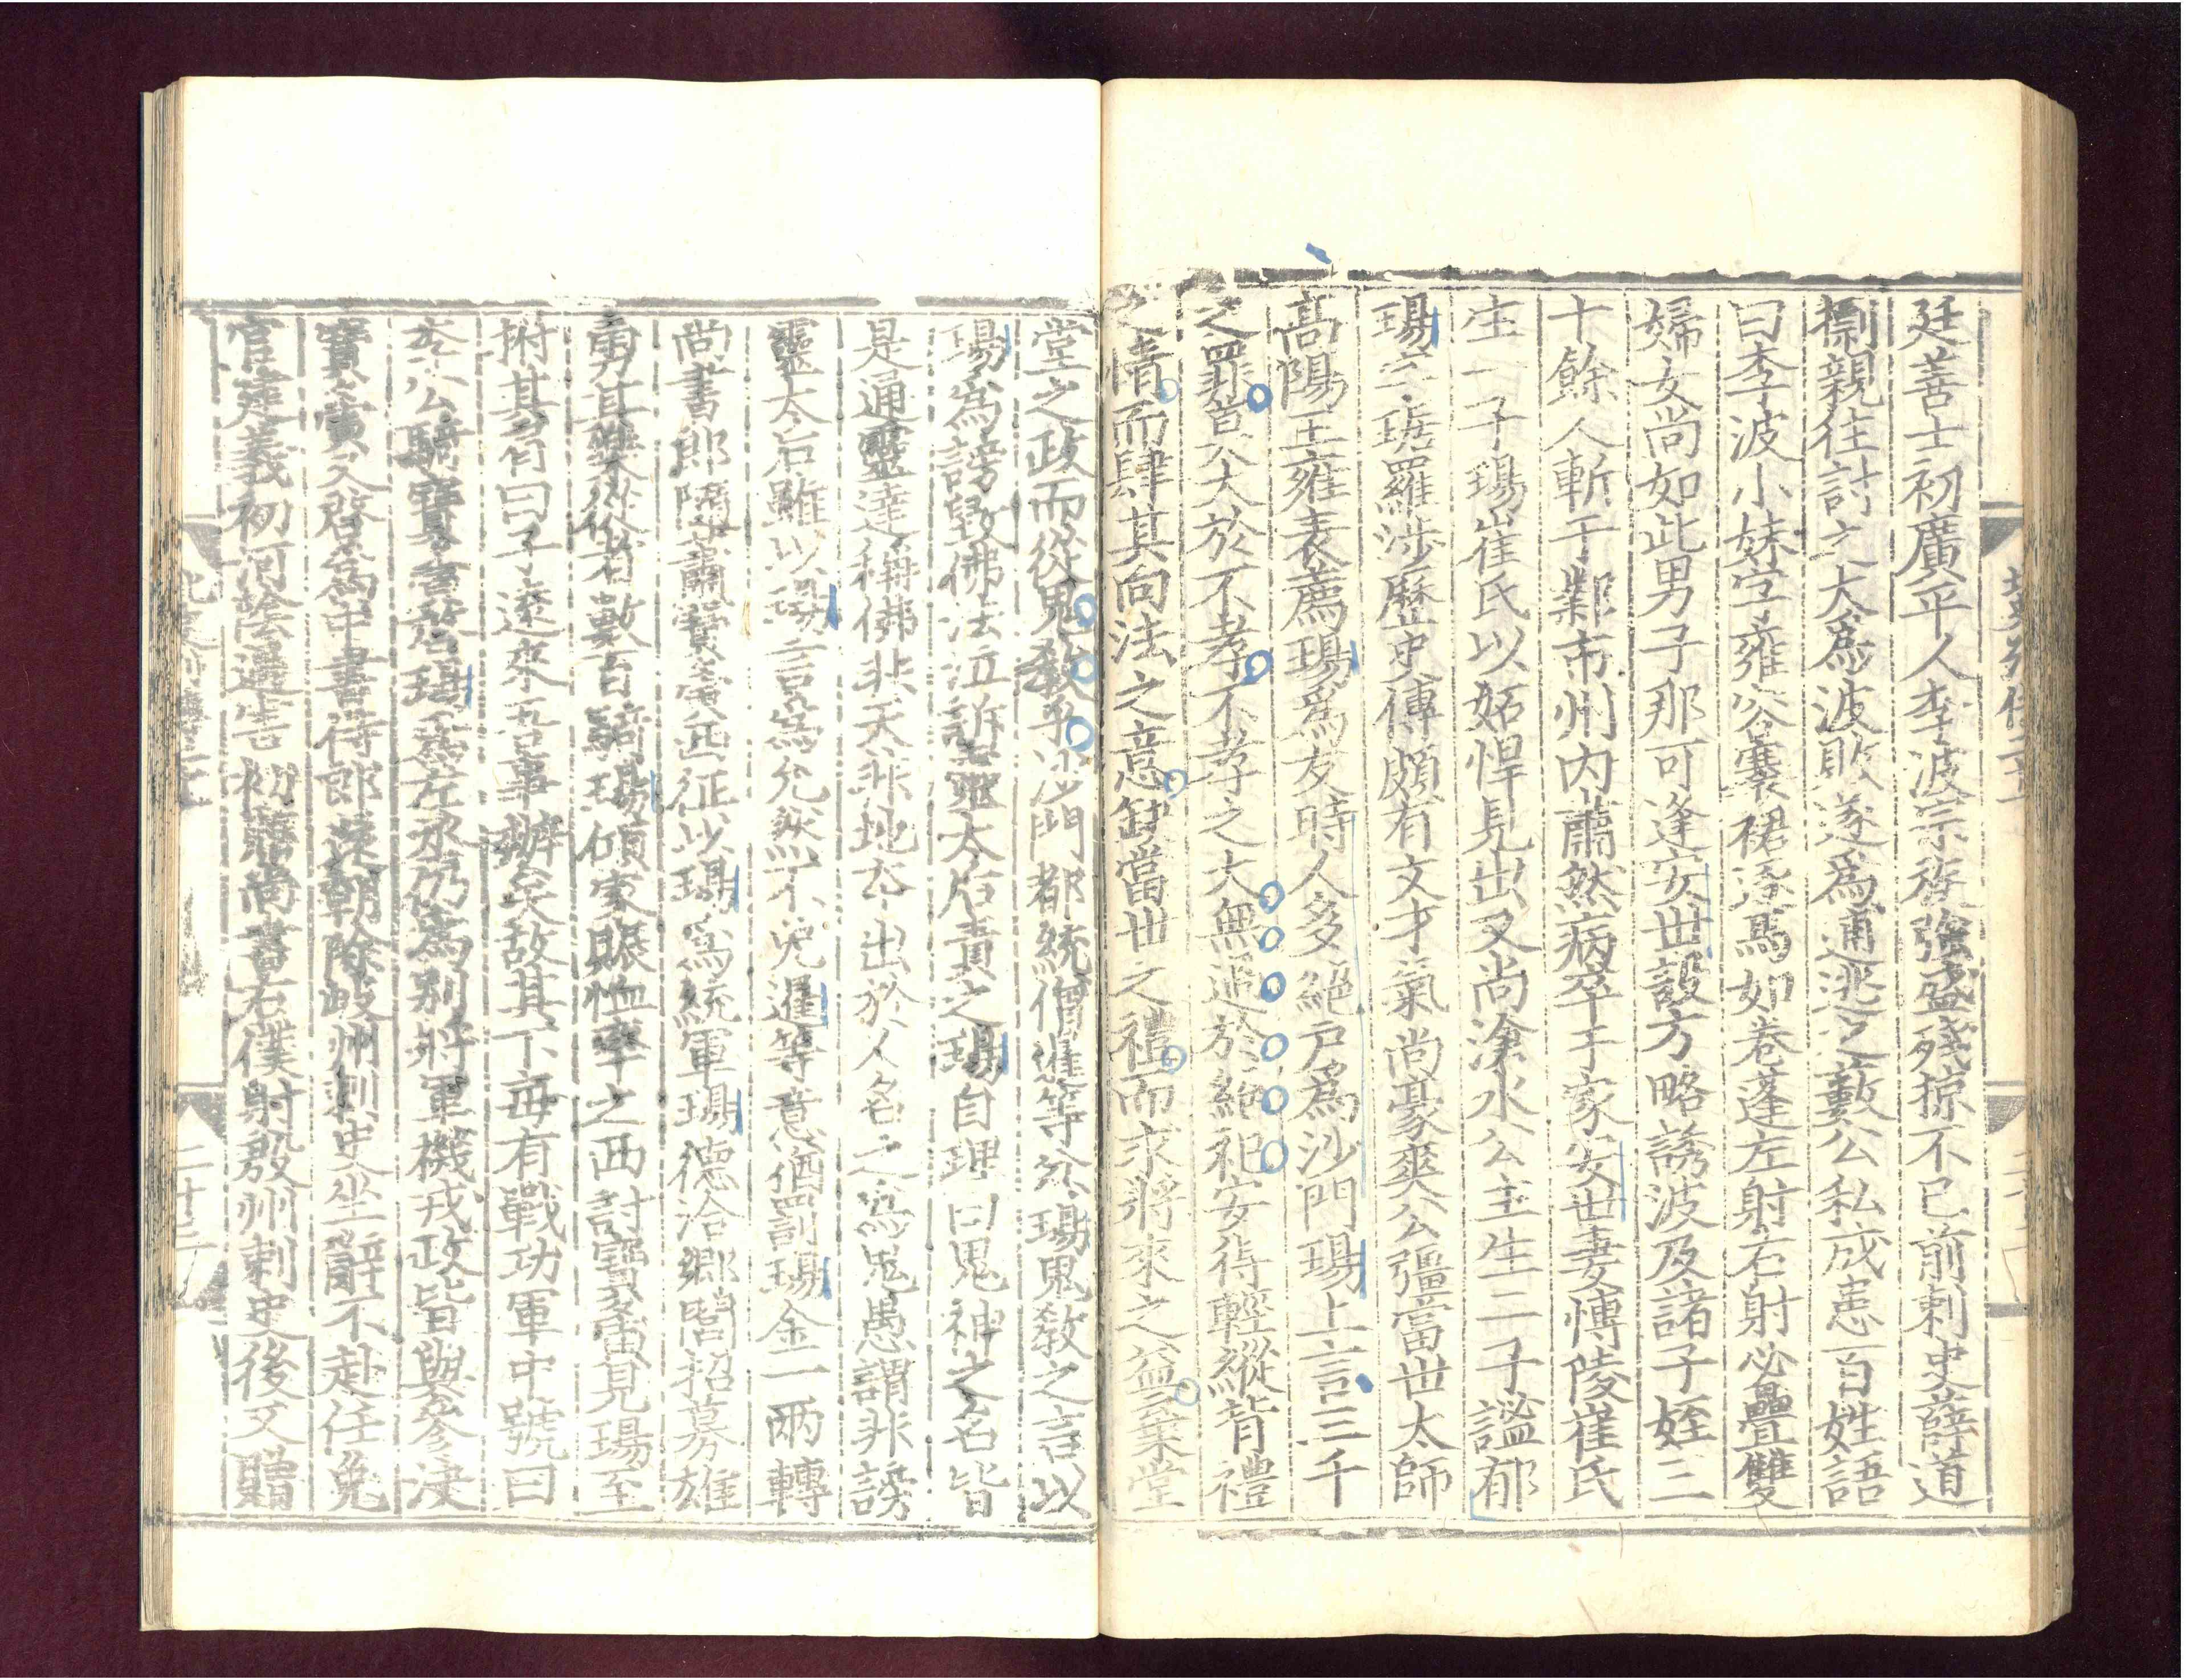 廷善士初廣平人李波宗族強盛殘掠不已前刺史薛道
𢷤親往討之大爲波敗遂爲逋逃之藪公私成患百姓語
曰李波小妹字雍容褰裙逐馬如卷蓬左射右射必疊雙
婦女尚如此男子那可逢安世設方略誘波及諸子姪三
十餘人斬于鄴市州内蕭然病卒于家安世妻博陵崔氏
生一子瑒崔氏以妬悍見出又尚滄水公主生二子謐郁
瑒字琚羅涉歷史傳頗有文才氣尚豪爽公彊當世太師
高陽王雍表薦瑒爲友時人多絕戶爲沙門瑒上言三千
之罪莫大於不孝不孝之大無過於絕祀安得輕縱背禮
之情而肆其向法之意缺當世之禮而求將來之益棄堂
堂之政而從鬼敎乎沙門都統僧暹等忿瑒鬼敎之言以
瑒爲謗毀佛法泣訴靈太后責之瑒自理曰鬼神之名皆
是通靈達稱佛非天非地本出於人名之爲鬼愚謂非謗
靈太后雖以瑒言爲允然不免暹等意猶罰瑒金一兩轉
尚書郎隨蕭寶夤西征以瑒爲統軍瑒德洽鄉閭招募雄
勇其樂從者數百騎瑒傾家賑恤率之西討寶夤見瑒至
拊其肩曰子遠來吾事辦矣故其下每有戰功軍中號曰
李公騎寶夤啓瑒爲左丞仍爲別將軍機戎政皆與參決
寶夤又啓爲中書侍郎還朝除岐州刺史坐辭不赴任免
官建義初河陰遇害初贈尚書右僕射殷州刺史後又贈
北史列傳二十一
二十三